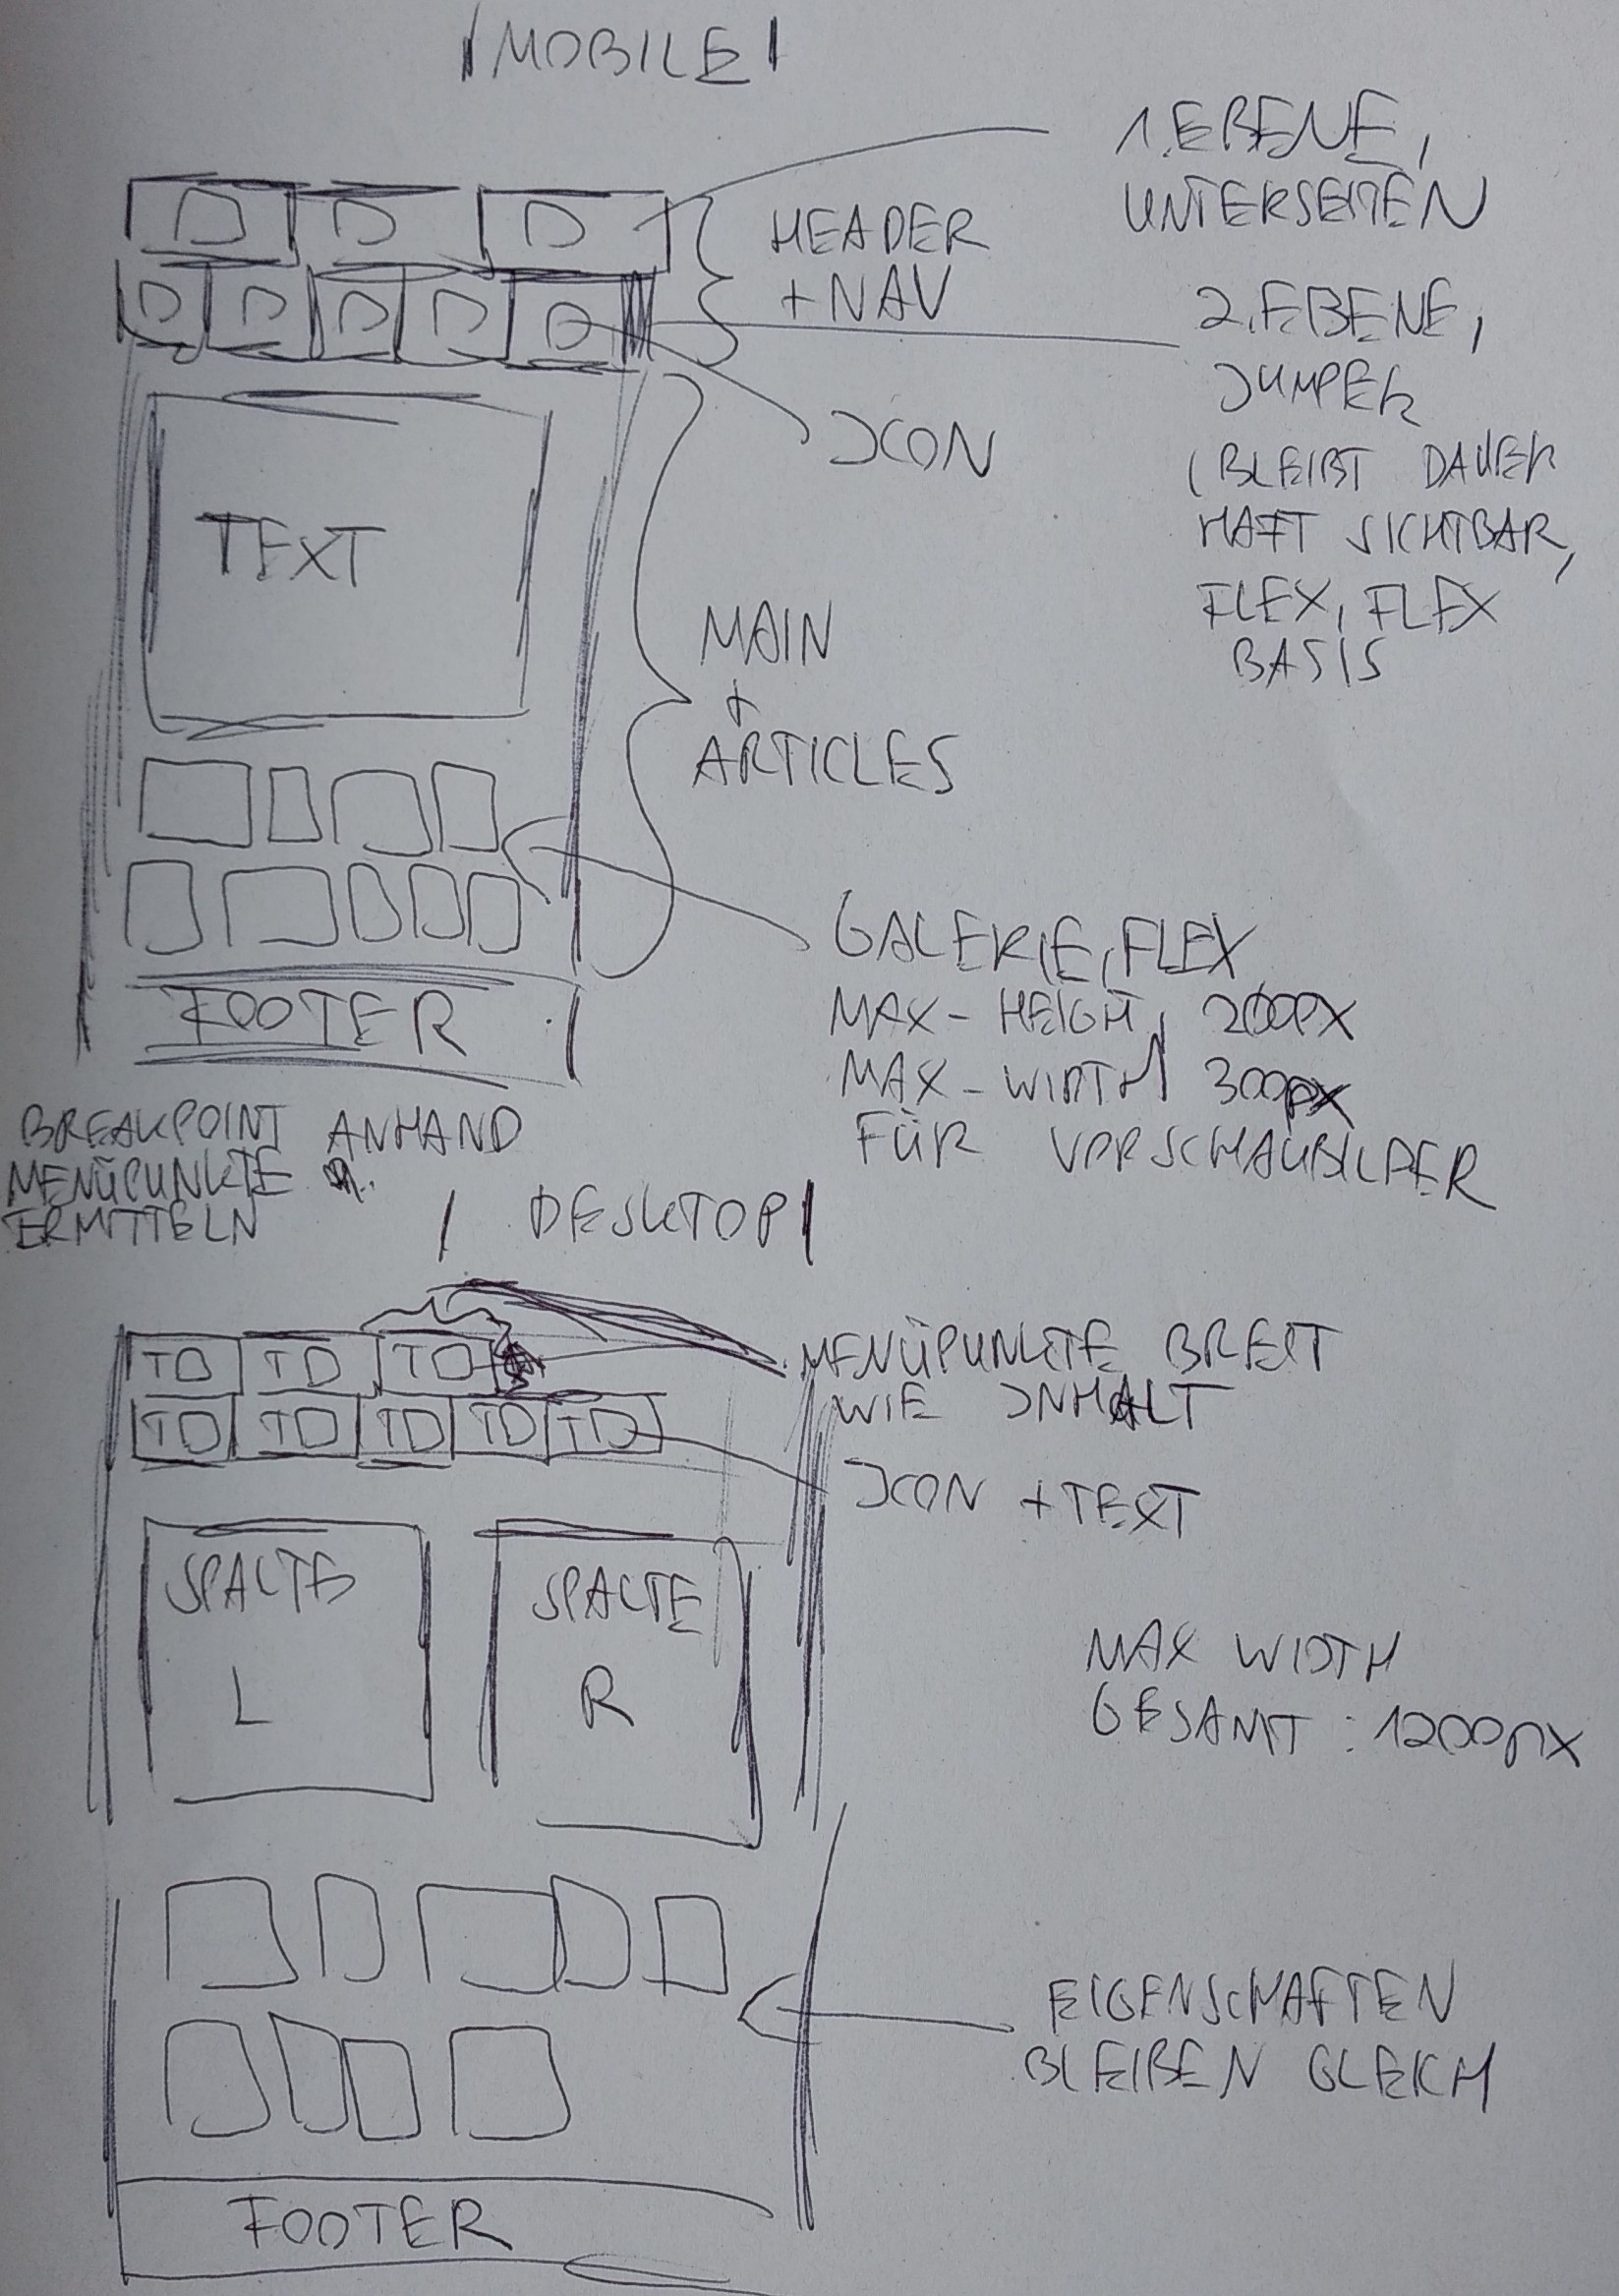 MOBILE
1. EBENE,
UNTERSEITEN
HEADER
+ NAV
2. EBENE,
JUMPER
(BLEIBT DAUER
HAFT SICHTBAR,
FLEX, FLEX
BASIS
ICON
TEXT
MAIN
+
ARTICLES
GALERIE, FLEX
MAX-HEIGHT, 200PX
MAX-WIDTH 300px
FÜR VORSCHAUBILDER
FOOTER
BREAKPOINT ANHAND
MENÜPUNKTE
ERMITTELN
DESKTOP
T T T
T T T T T
MENÜPUNKTE BREIT
WIE INHALT
ICON + TEXT
SPALTE
L
SPALTE
R
MAX WIDTH
GESAMT : 1200px
EIGENSCHAFTEN
BLEIBEN GLEICH
FOOTER